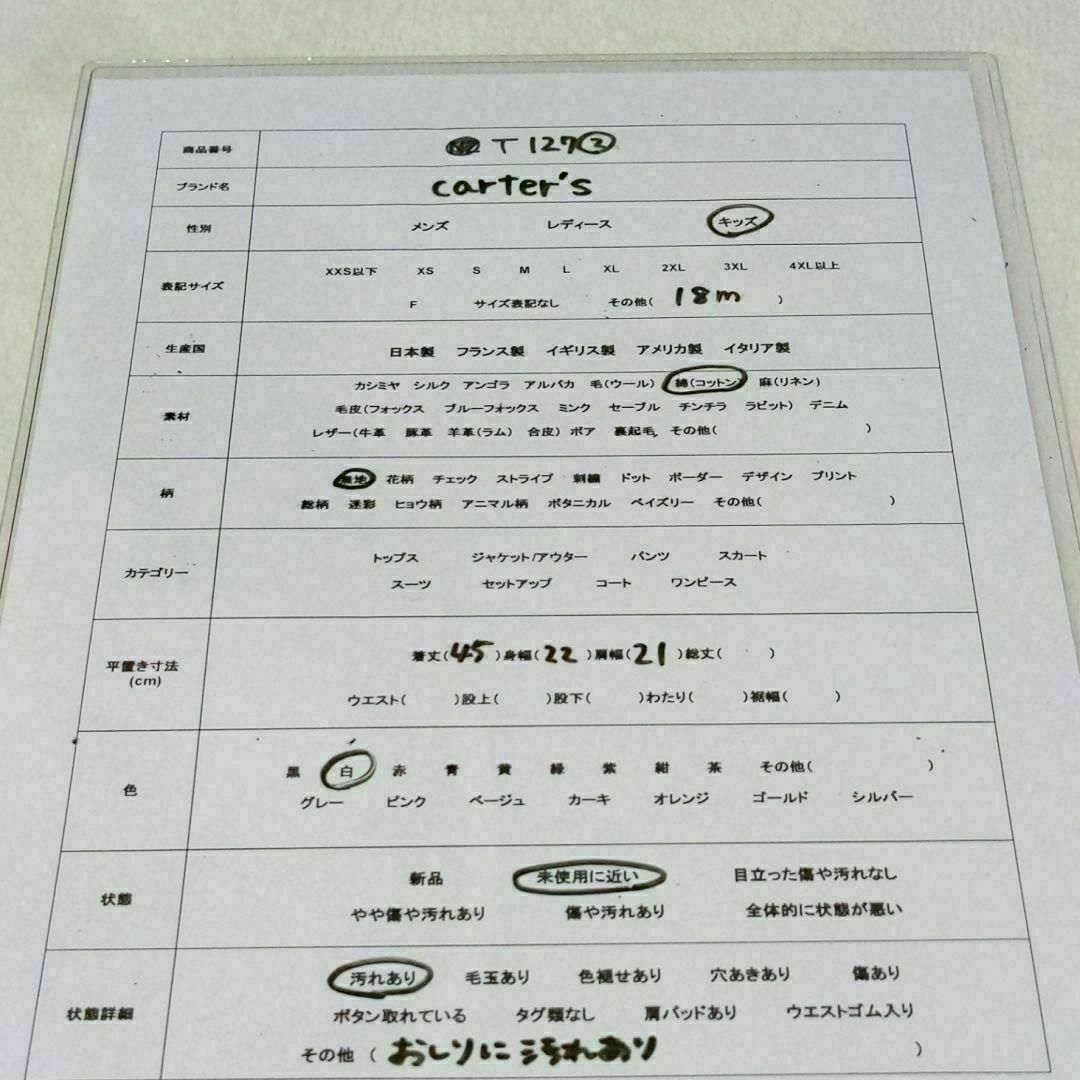 商品番号 T 127②
ブランド名 carter's
性別 メンズ レディース キッズ
表記サイズ XXS以下 XS S M L XL 2XL 3XL 4XL以上
F サイズ表記なし その他( 18m )
生産国 日本製 フランス製 イギリス製 アメリカ製 イタリア製
素材 カシミヤ シルク アンゴラ アルパカ 毛(ウール) 綿(コットン) 麻(リネン)
毛皮(フォックス ブルーフォックス ミンク セーブル チンチラ ラビット) デニム
レザー(牛革 豚革 羊革(ラム) 合皮) ボア 裏起毛 その他( )
柄 無地 花柄 チェック ストライプ 刺繍 ドット ボーダー デザイン プリント
総柄 迷彩 ヒョウ柄 アニマル柄 ボタニカル ペイズリー その他( )
カテゴリー トップス ジャケット/アウター パンツ スカート
スーツ セットアップ コート ワンピース
平置き寸法 (cm) 着丈(45)身幅(22)肩幅(21)総丈( )
ウエスト( )股上( )股下( )わたり( )裾幅( )
色 黒 白 赤 青 黄 緑 紫 紺 茶 その他( )
グレー ピンク ベージュ カーキ オレンジ ゴールド シルバー
状態 新品 未使用に近い 目立った傷や汚れなし
やや傷や汚れあり 傷や汚れあり 全体的に状態が悪い
状態詳細 汚れあり 毛玉あり 色褪せあり 穴あきあり 傷あり
ボタン取れている タグ類なし 肩パッドあり ウエストゴム入り
その他 ( おしりに汚れあり )